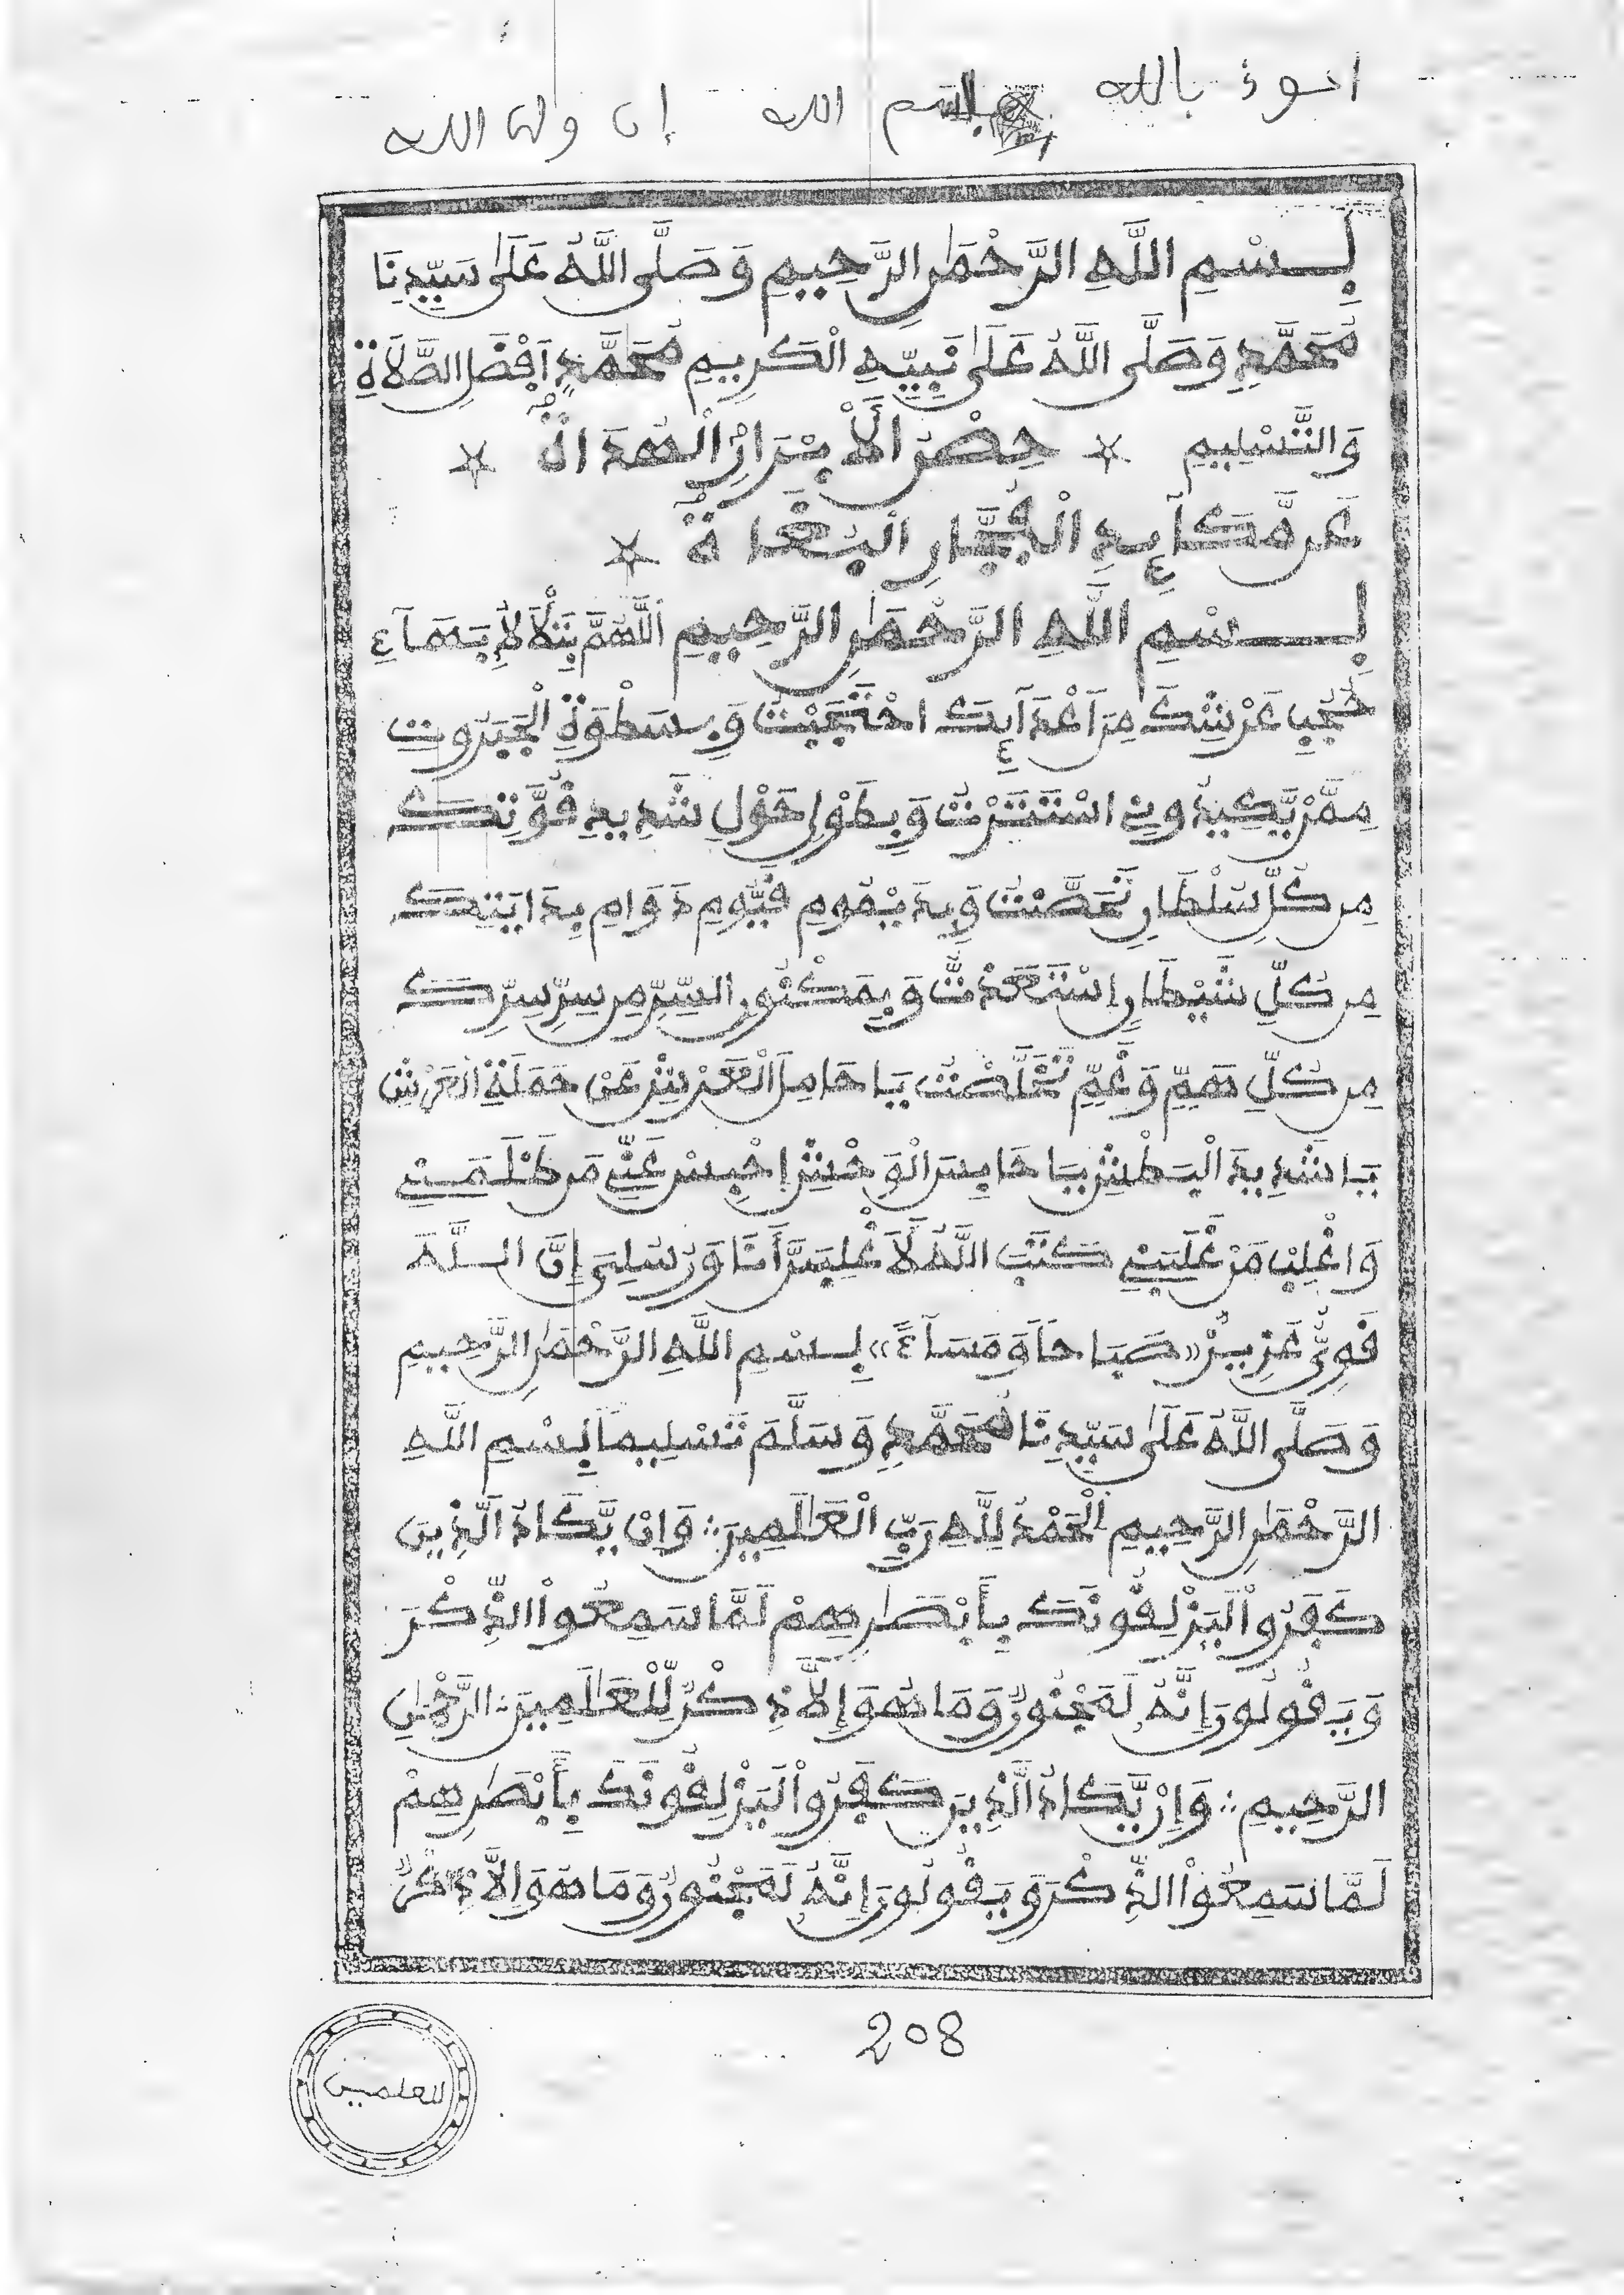 اعوذ بالله بسم الله إن ولى الله
بِسْمِ اللَّهِ الرَّحْمَٰنِ الرَّحِيمِ وَصَلَّى اللَّهُ عَلَىٰ سَيِّدِنَا
مُحَمَّدٍ وَصَلَّى اللَّهُ عَلَىٰ نَبِيِّهِ الْكَرِيمِ مُحَمَّدٍ اَفْضَلِ الصَّلَاةِ
وَالتَّسْلِيمِ ☆ حِصْنُ الْأَبْرَارِ الْهُدَاةُ ☆
عَن مَّكَآئِدِ الْفُجَّارِ الْبُغَاةُ ☆
بِسْمِ اللَّهِ الرَّحْمَٰنِ الرَّحِيمِ اَللَّهُمَّ بِتَلَأْلَأِ بَهَآءِ
حُجُبِ عَرْشِكَ مِنَ اَعْدَآئِكَ احْتَجَبْتُ وَبِسَطْوَةِ الْجَبَرُوتِ
مِمَّنْ يَّكِيدُونِي اسْتَتَرْتُ وَبِطَوْلِ حَوْلِ شَدِيدِ قُوَّتِكَ
مِن كُلِّ سُلْطَانٍ تَحَصَّنْتُ وَبِدَيْمُومِ قَيُّومِ دَوَامِ بِدَايَتِكَ
مِن كُلِّ شَيْطَانٍ اِسْتَعَذْتُ وَبِمَكْنُونِ السِّرِّ مِن سِرِّ سِرِّكَ
مِن كُلِّ هَمٍّ وَغَمٍّ تَخَلَّصْتُ يَا حَامِلَ الْعَرْشِ عَنْ حَمَلَةِ الْعَرْشِ
يَا شَدِيدَ الْبَطْشِ يَا حَابِسَ الْوَحْشِ اِحْبِسْ عَنِّي مَن ظَلَمَنِي
وَاغْلِبْ مَنْ غَلَبَنِي كَتَبَ اللَّهُ لَأَغْلِبَنَّ أَنَا وَرُسُلِي إِنَّ اللَّهَ
قَوِيٌّ عَزِيزٌ «صَبَاحًا وَمَسَآءً» بِسْمِ اللَّهِ الرَّحْمَٰنِ الرَّحِيمِ
وَصَلَّى اللَّهُ عَلَىٰ سَيِّدِنَا مُحَمَّدٍ وَسَلَّمَ تَسْلِيمًا بِسْمِ اللَّهِ
الرَّحْمَٰنِ الرَّحِيمِ الْحَمْدُ لِلَّهِ رَبِّ الْعَٰلَمِينَ ∴ وَإِنْ يَّكَادُ الَّذِينَ
كَفَرُواْ لَيَزْلِقُونَكَ بِأَبْصَٰرِهِمْ لَمَّا سَمِعُواْ الذِّكْرَ
وَيَقُولُونَ إِنَّهُ لَمَجْنُونٌ وَمَا هُوَ إِلَّا ذِكْرٌ لِّلْعَٰلَمِينَ ∴ الرَّحْمَٰنِ
الرَّحِيمِ ∴ وَإِنْ يَّكَادُ الَّذِينَ كَفَرُواْ لَيَزْلِقُونَكَ بِأَبْصَٰرِهِمْ
لَمَّا سَمِعُواْ الذِّكْرَ وَيَقُولُونَ إِنَّهُ لَمَجْنُونٌ وَمَا هُوَ إِلَّا ذِكْرٌ
208
للعلمين